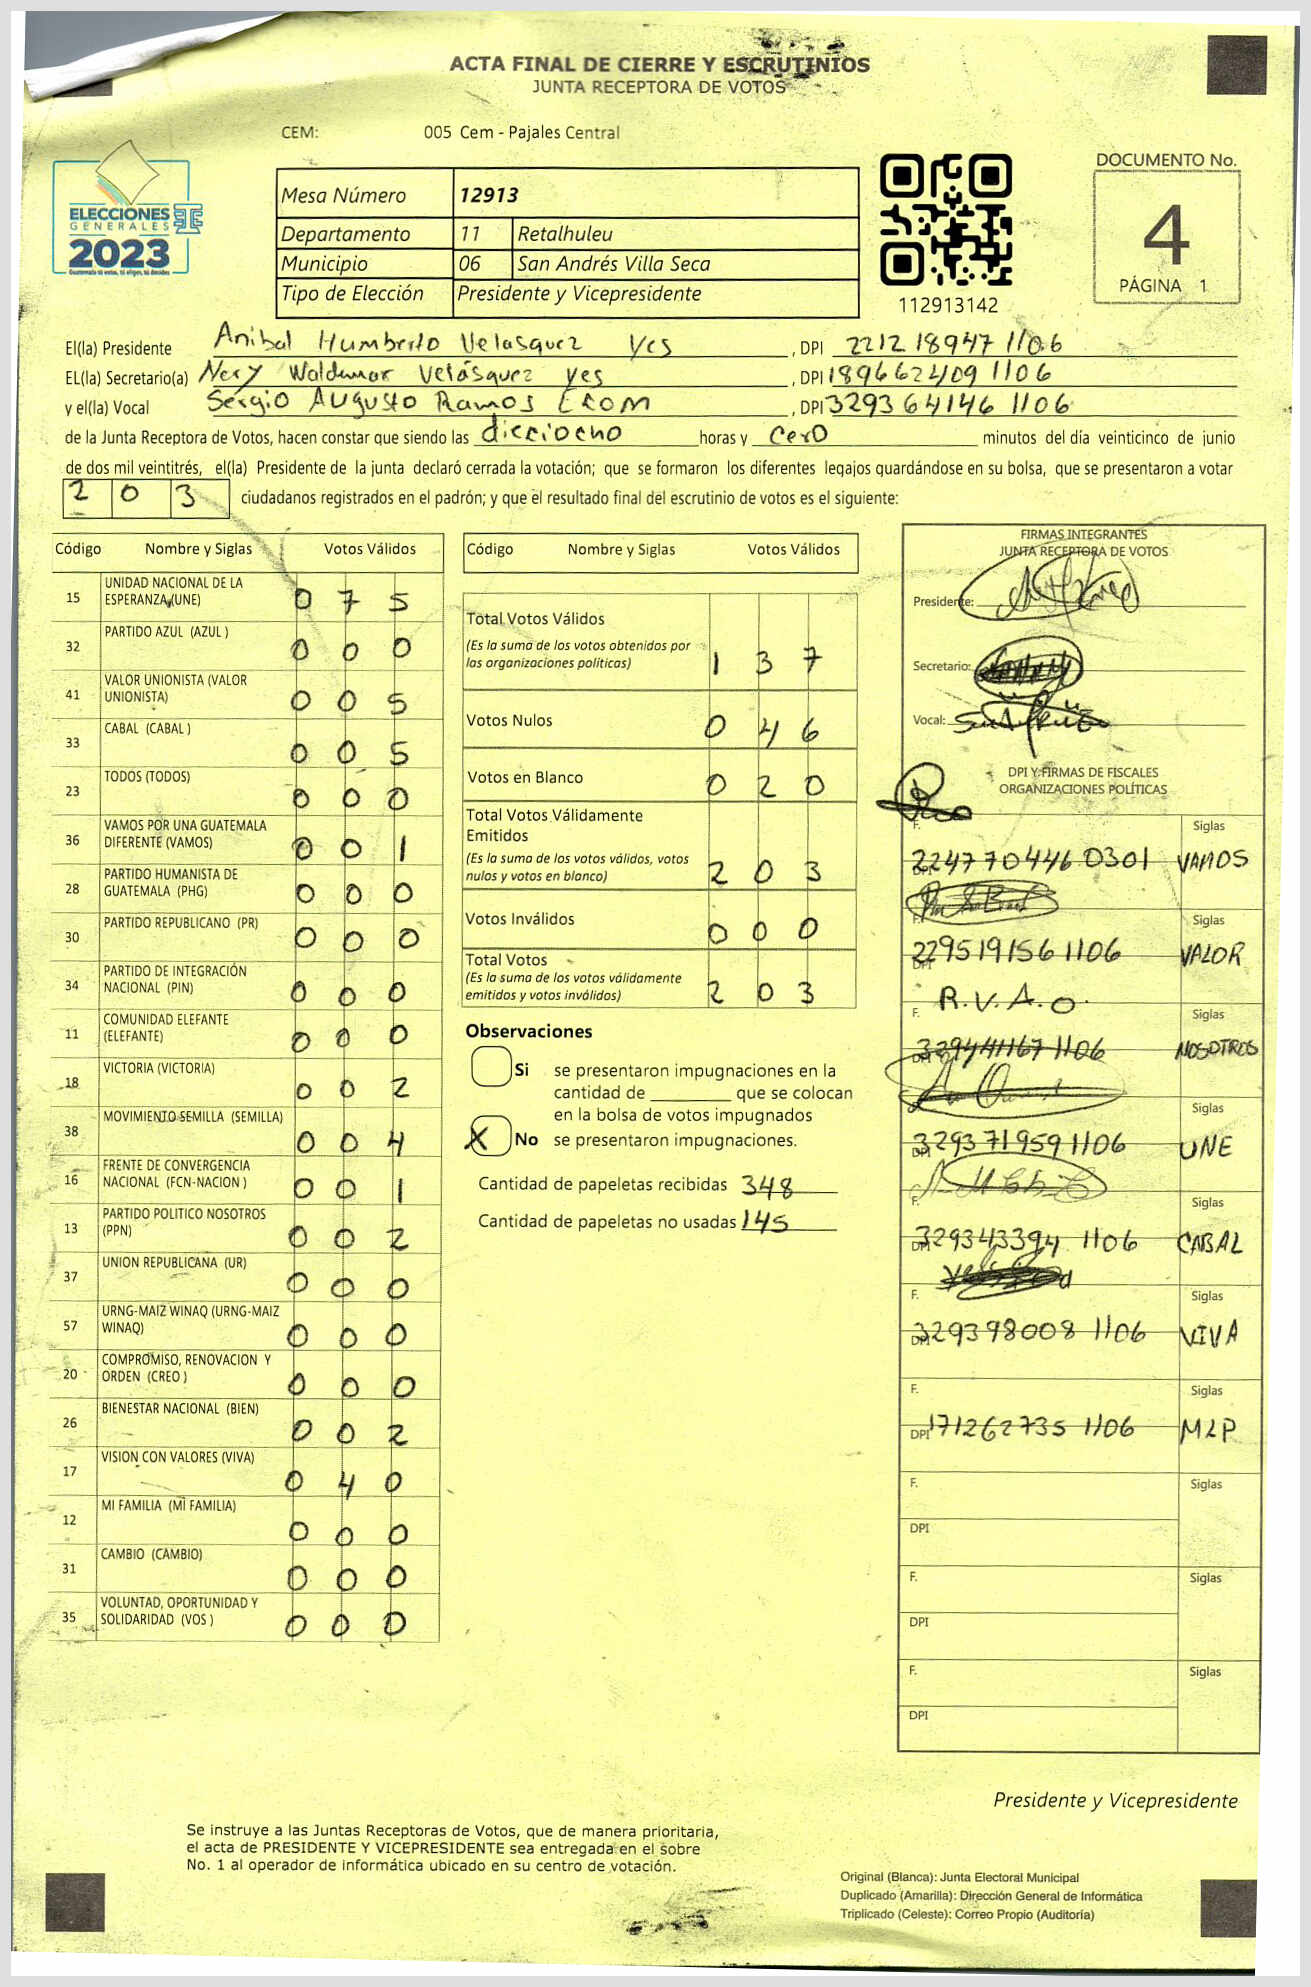 ACTA FINAL DE CIERRE Y ESCRUTINIOS
JUNTA RECEPTORA DE VOTOS
CEM: 005 Cem - Pajales Central
ELECCIONES
GENERALES
2023
Guatemala tú votas, tú eliges, tú decides
Mesa Número 12913
Departamento 11 Retalhuleu
Municipio 06 San Andrés Villa Seca
Tipo de Elección Presidente y Vicepresidente
112913142
DOCUMENTO No.
4
PÁGINA 1
El(la) Presidente Anibal Humberto Velasquez Yes , DPI 2212 18947 1106
EL(la) Secretario(a) Nery Waldemar Velásquez yes , DPI 189662409 1106
y el(la) Vocal Sergio Augusto Ramos , DPI 329364146 1106
de la Junta Receptora de Votos, hacen constar que siendo las dieciocho horas y cero minutos del día veinticinco de junio
de dos mil veintitrés, el(la) Presidente de la junta declaró cerrada la votación; que se formaron los diferentes legajos guardándose en su bolsa, que se presentaron a votar
2 0 3 ciudadanos registrados en el padrón; y que el resultado final del escrutinio de votos es el siguiente:
Código Nombre y Siglas Votos Válidos
15 UNIDAD NACIONAL DE LA ESPERANZA (UNE) 0 7 5
32 PARTIDO AZUL (AZUL ) 0 0 0
41 VALOR UNIONISTA (VALOR UNIONISTA) 0 0 5
33 CABAL (CABAL ) 0 0 5
23 TODOS (TODOS) 0 0 0
36 VAMOS POR UNA GUATEMALA DIFERENTE (VAMOS) 0 0 1
28 PARTIDO HUMANISTA DE GUATEMALA (PHG) 0 0 0
30 PARTIDO REPUBLICANO (PR) 0 0 0
34 PARTIDO DE INTEGRACIÓN NACIONAL (PIN) 0 0 0
11 COMUNIDAD ELEFANTE (ELEFANTE) 0 0 0
18 VICTORIA (VICTORIA) 0 0 2
38 MOVIMIENTO SEMILLA (SEMILLA) 0 0 4
16 FRENTE DE CONVERGENCIA NACIONAL (FCN-NACION ) 0 0 1
13 PARTIDO POLITICO NOSOTROS (PPN) 0 0 2
37 UNION REPUBLICANA (UR) 0 0 0
57 URNG-MAIZ WINAQ (URNG-MAIZ WINAQ) 0 0 0
20 COMPROMISO, RENOVACION Y ORDEN (CREO ) 0 0 0
26 BIENESTAR NACIONAL (BIEN) 0 0 2
17 VISION CON VALORES (VIVA) 0 4 0
12 MI FAMILIA (MI FAMILIA) 0 0 0
31 CAMBIO (CAMBIO) 0 0 0
35 VOLUNTAD, OPORTUNIDAD Y SOLIDARIDAD (VOS ) 0 0 0
Código Nombre y Siglas Votos Válidos
Total Votos Válidos
(Es la suma de los votos obtenidos por
las organizaciones políticas) 1 3 7
Votos Nulos 0 4 6
Votos en Blanco 0 2 0
Total Votos Válidamente
Emitidos
(Es la suma de los votos válidos, votos
nulos y votos en blanco) 2 0 3
Votos Inválidos 0 0 0
Total Votos
(Es la suma de los votos válidamente
emitidos y votos inválidos) 2 0 3
Observaciones
Si se presentaron impugnaciones en la
cantidad de ________ que se colocan
en la bolsa de votos impugnados
X No se presentaron impugnaciones.
Cantidad de papeletas recibidas 348
Cantidad de papeletas no usadas 145
FIRMAS INTEGRANTES
JUNTA RECEPTORA DE VOTOS
Presidente:
Secretario:
Vocal:
DPI Y FIRMAS DE FISCALES
ORGANIZACIONES POLÍTICAS
F. Siglas
DPI 224770446 0301 VAMOS
F. Siglas
DPI 229519156 1106 VALOR
F. R.V.A.O. Siglas
DPI 329441167 1106 NOSOTROS
F. Siglas
DPI 329371959 1106 UNE
F. Siglas
DPI 329343394 1106 CABAL
F. Siglas
DPI 329398008 1106 VIVA
F. Siglas
DPI 171262735 1106 MLP
F. Siglas
DPI
F. Siglas
DPI
F. Siglas
DPI
Presidente y Vicepresidente
Se instruye a las Juntas Receptoras de Votos, que de manera prioritaria,
el acta de PRESIDENTE Y VICEPRESIDENTE sea entregada en el sobre
No. 1 al operador de informática ubicado en su centro de votación.
Original (Blanca): Junta Electoral Municipal
Duplicado (Amarilla): Dirección General de Informática
Triplicado (Celeste): Correo Propio (Auditoría)